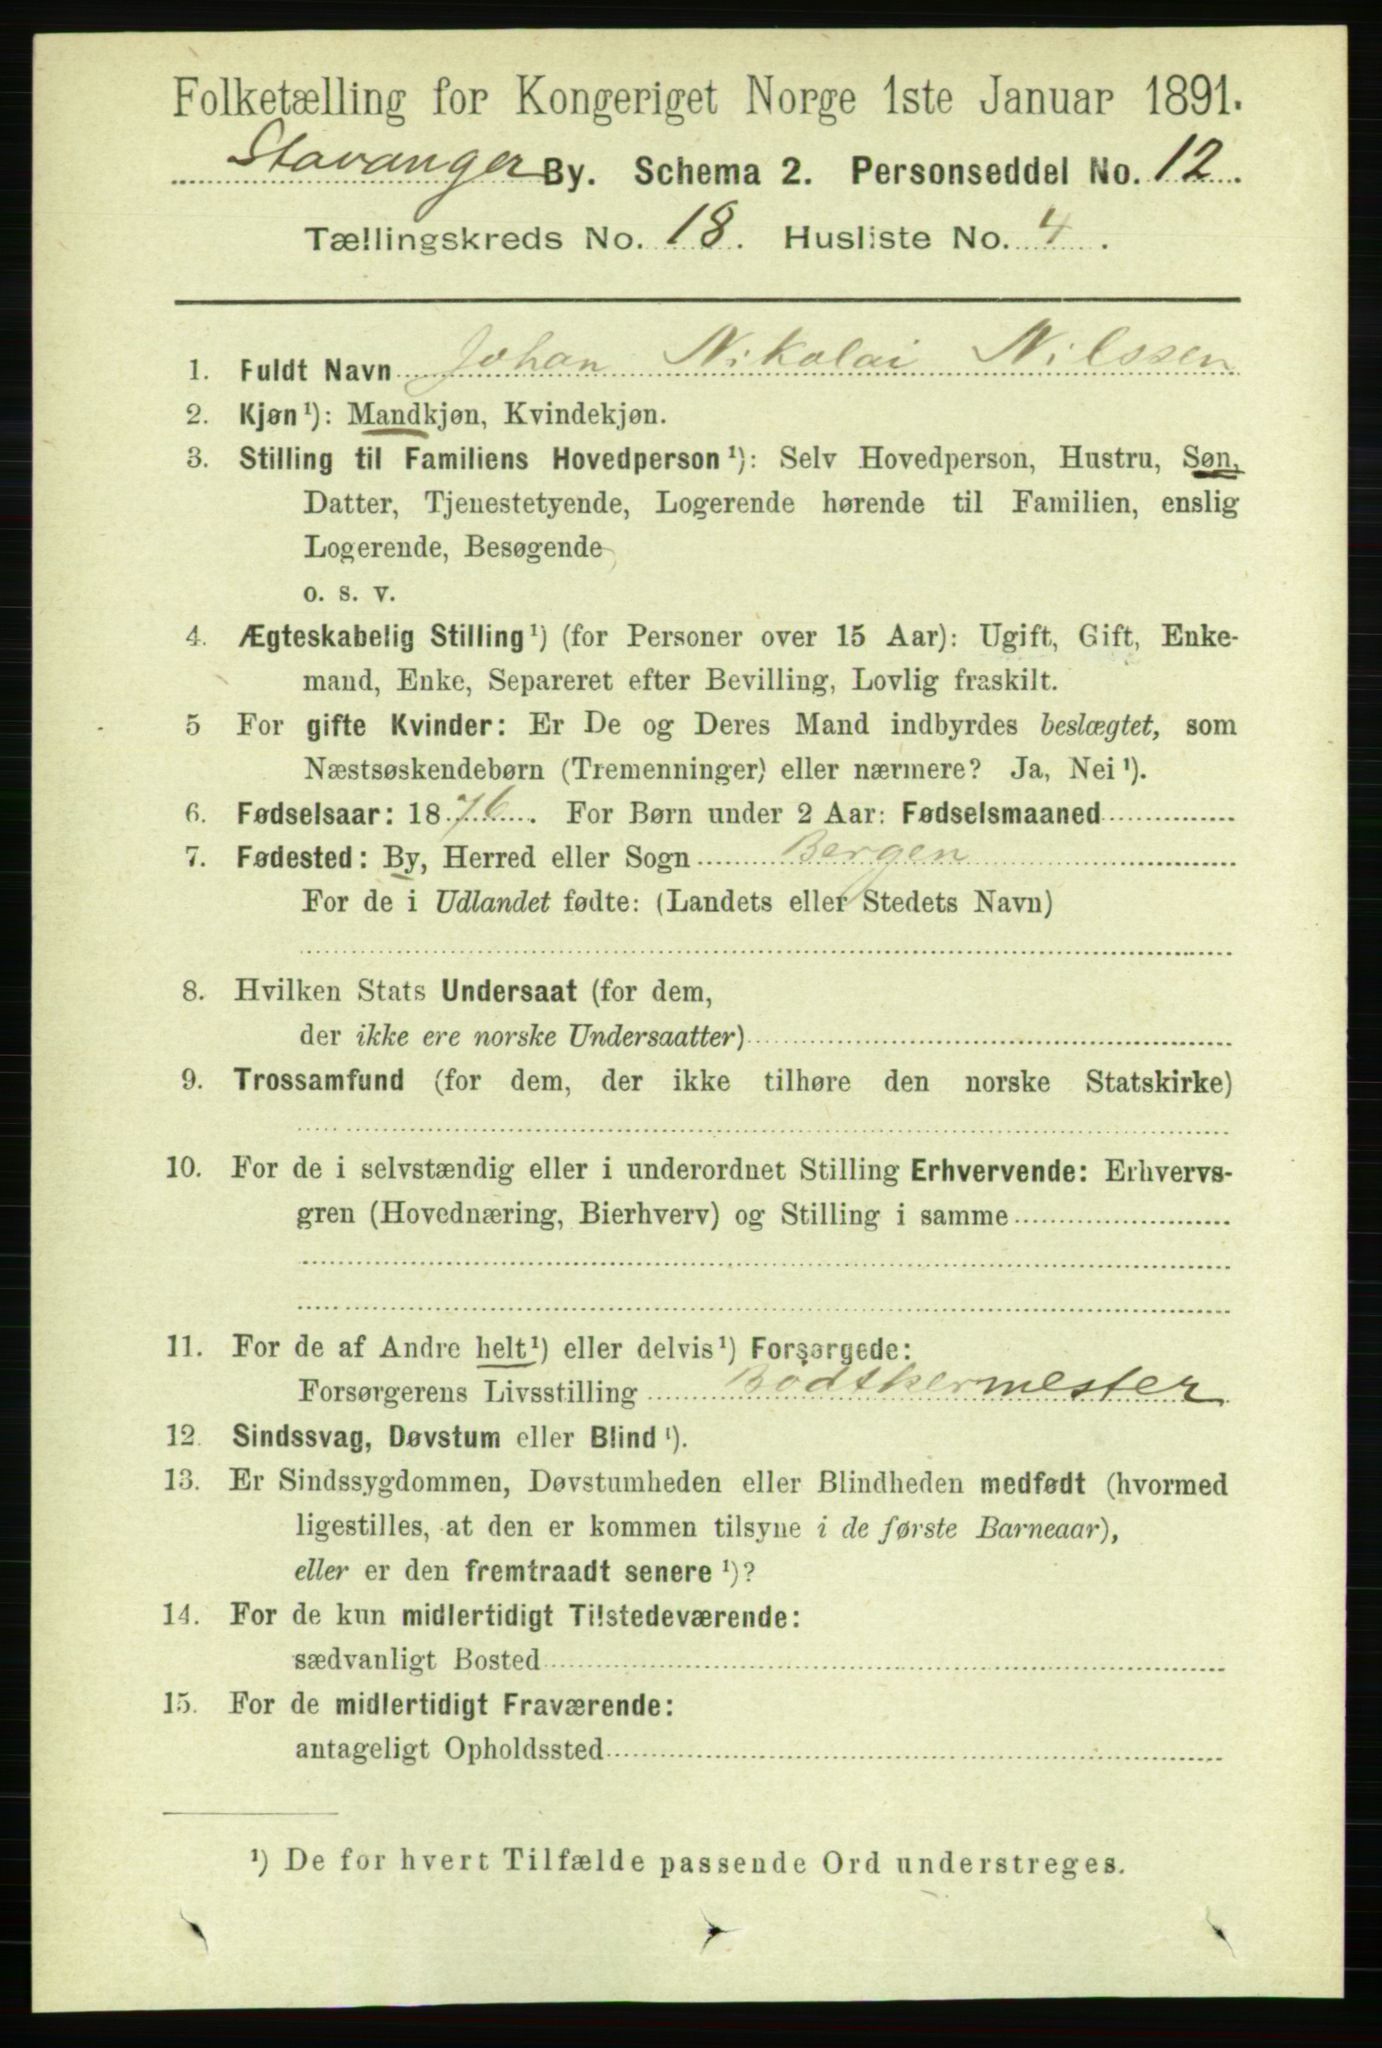 Folketælling for Kongeriget Norge 1ste Januar 1891.
Stavanger By. Schema 2. Personseddel No. 12.
Tællingskreds No. 18. Husliste No. 4.
1. Fuldt Navn Johan Nikolai Nilssen
2. Kjøn¹): Mandkjøn, Kvindekjøn.
3. Stilling til Familiens Hovedperson¹): Selv Hovedperson, Hustru, Søn,
Datter, Tjenestetyende, Logerende hørende til Familien, enslig
Logerende, Besøgende
o. s. v.
4. Ægteskabelig Stilling¹) (for Personer over 15 Aar): Ugift, Gift, Enke-
mand, Enke, Separeret efter Bevilling, Lovlig fraskilt.
5 For gifte Kvinder: Er De og Deres Mand indbyrdes beslægtet, som
Næstsøskendebørn (Tremenninger) eller nærmere? Ja, Nei¹).
6. Fødselsaar: 1876. For Børn under 2 Aar: Fødselsmaaned
7. Fødested: By, Herred eller Sogn Bergen
For de i Udlandet fødte: (Landets eller Stedets Navn)
8. Hvilken Stats Undersaat (for dem,
der ikke ere norske Undersaatter)
9. Trossamfund (for dem, der ikke tilhøre den norske Statskirke)
10. For de i selvstændig eller i underordnet Stilling Erhvervende: Erhvervs-
gren (Hovednæring, Bierhverv) og Stilling i samme
11. For de af Andre helt¹) eller delvis¹) Forsørgede:
Forsørgerens Livsstilling Bødtkermester
12. Sindssvag, Døvstum eller Blind¹).
13. Er Sindssygdommen, Døvstumheden eller Blindheden medfødt (hvormed
ligestilles, at den er kommen tilsyne i de første Barneaar),
eller er den fremtraadt senere¹)?
14. For de kun midlertidigt Tilstedeværende:
sædvanligt Bosted
15. For de midlertidigt Fraværende:
antageligt Opholdssted
¹) De for hvert Tilfælde passende Ord understreges.